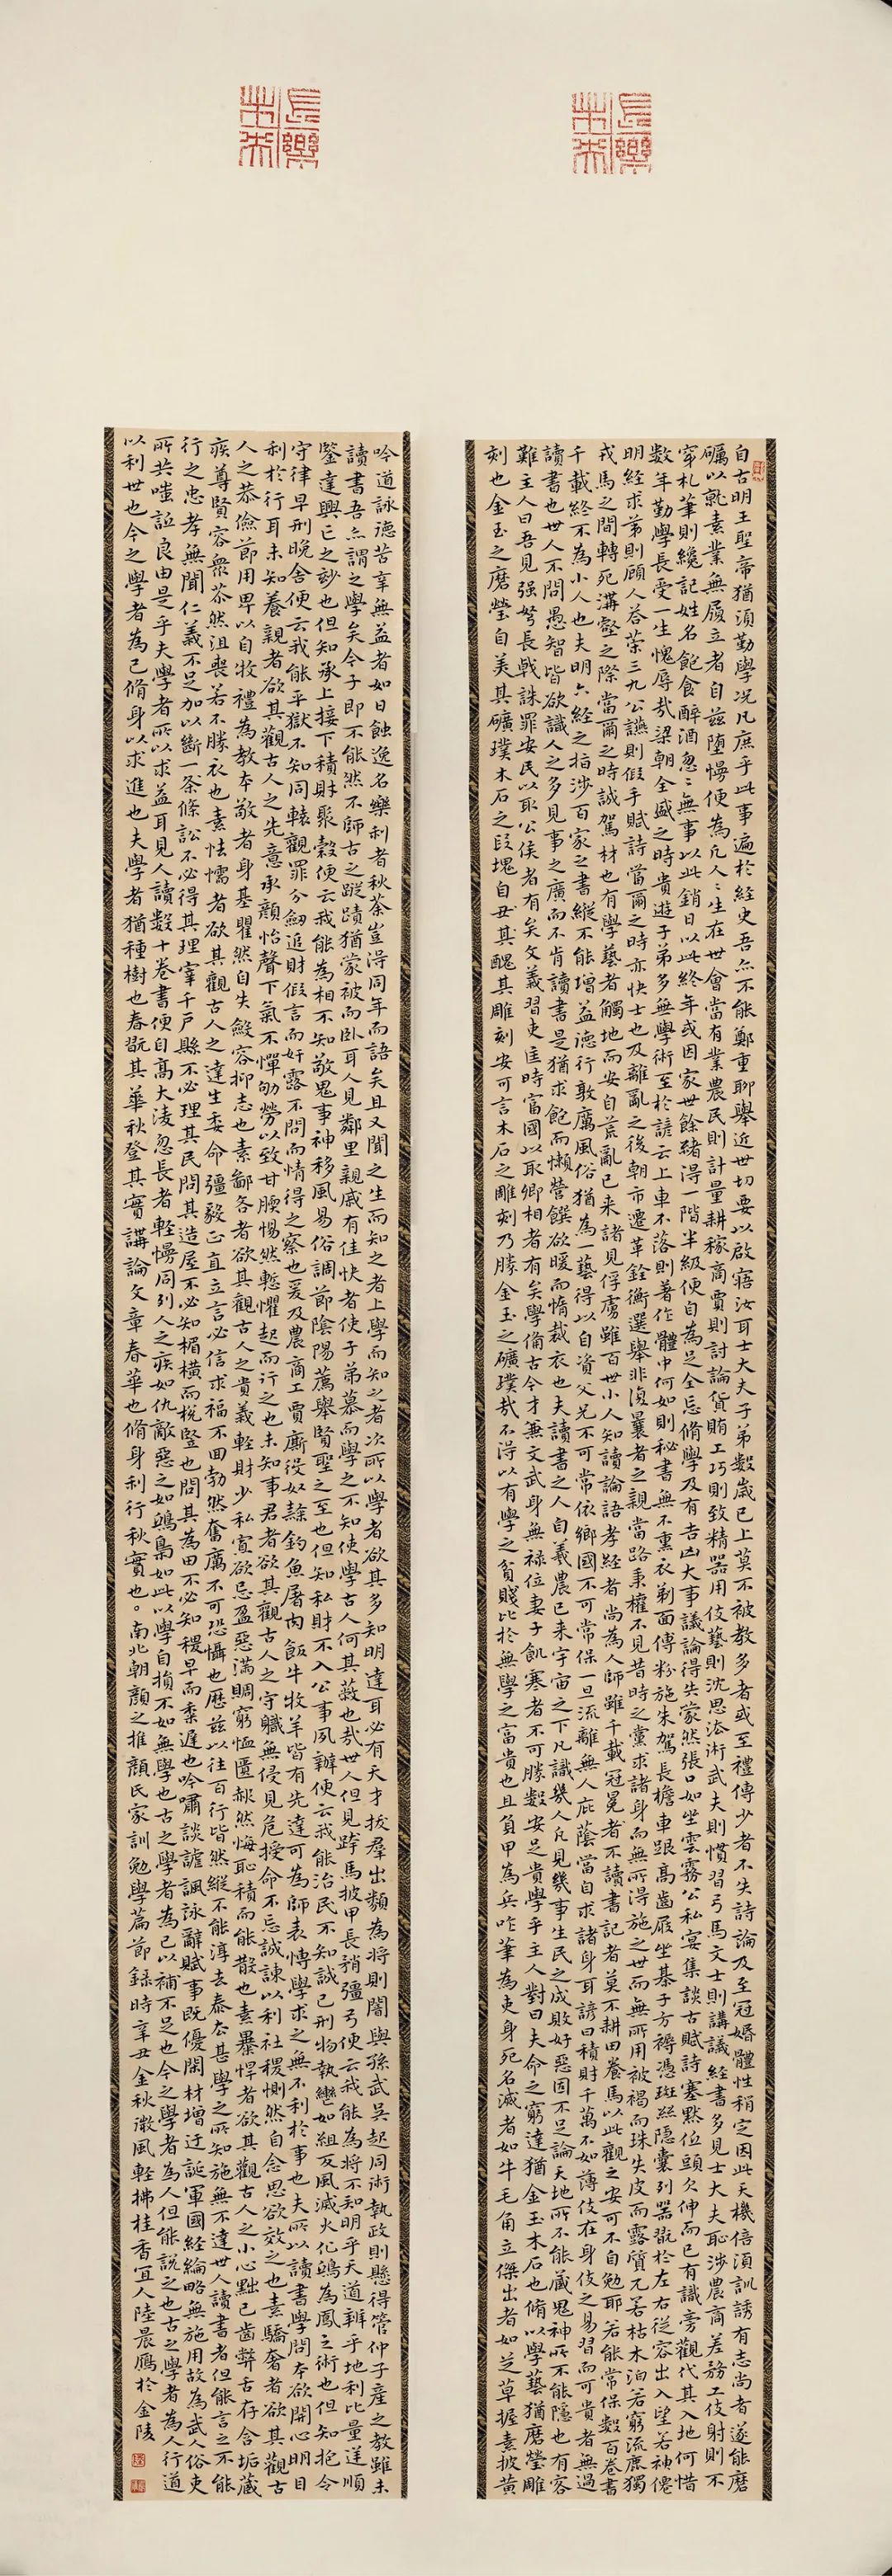 長樂未央
長樂未央
自古明王聖帝猶須勤學況凡庶乎此事遍於經史吾亦不能鄭重聊舉近世切要以啟寤汝耳士大夫子弟數歲已上莫不被教多者或至禮傳少者不失詩論及至冠婚體性稍定因此天機倍須訓誘有志尚者遂能磨
礪以就素業無履立者自茲墮慢便為凡人〻生在世會當有業農民則計量耕稼商賈則討論貨賄工巧則致精器用伎藝則沈思法術武夫則慣習弓馬文士則講議經書多見士大夫恥涉農商差務工伎射則不
穿札筆則纔記姓名飽食醉酒忽〻無事以此銷日以此終年或因家世餘緒得一階半級便自為足全忘脩學及有吉凶大事議論得失蒙然張口如坐雲霧公私宴集談古賦詩塞默低頭欠伸而已有識旁觀代其入地何惜
數年勤學長受一生愧辱哉梁朝全盛之時貴遊子弟多無學術至於諺云上車不落則著作體中何如則秘書無不熏衣剃面傅粉施朱駕長檐車跟高齒屐坐棊子方褥憑斑絲隱囊列器翫於左右從容出入望若神僊
明經求第則顧人答策三九公讌則假手賦詩當爾之時亦快士也及離亂之後朝市遷革銓衡選舉非復曩者之親當路秉權不見昔時之黨求諸身而無所得施之世而無所用被褐而珠失皮而露質兀若枯木泊若窮流鹿獨
戎馬之間轉死溝壑之際當爾之時誠駑材也有學藝者觸地而安自荒亂已来諸見俘虜雖百世小人知讀論語孝經者尚為人師雖千載冠冕者不讀書記者莫不耕田養馬以此觀之安可不自勉耶若能常保數百卷書
千載終不為小人也夫明六經之指涉百家之書縱不能增益德行敦厲風俗猶為一藝得以自資父兄不可常依鄉國不可常保一旦流離無人庇蔭當自求諸身耳諺曰積財千萬不如薄伎在身伎之易習而可貴者無過
讀書也世人不問愚智皆欲識人之多見事之廣而不肯讀書是猶求飽而懶營饌欲暖而惰裁衣也夫讀書之人自羲農已来宇宙之下凡識幾人凡見幾事生民之成敗好惡固不足論天地所不能藏鬼神所不能隱也有客
難主人曰吾見强弩長戟誅罪安民以取公侯者有矣文義習吏匡時富國以取卿相者有矣學備古今才兼文武身無祿位妻子飢寒者不可勝數安足貴學乎主人對曰夫命之窮達猶金玉木石也脩以學藝猶磨瑩雕
刻也金玉之磨瑩自美其礦璞木石之段塊自丑其醜其雕刻安可言木石之雕刻乃勝金玉之礦璞哉不得以有學之貧賤比於無學之富貴也且負甲為兵咋筆為吏身死名滅者如牛毛角立傑出者如芝草握素披黃
吟道詠德苦辛無益者如日蝕逸名樂利者秋荼豈得同年而語矣且又聞之生而知之者上學而知之者次所以學者欲其多知明達耳必有天才拔羣出類為將則闇與孫武吳起同術執政則懸得管仲子產之教雖未
讀書吾亦謂之學矣今子即不能然不師古之蹤蹟猶蒙被而臥耳人見鄰里親戚有佳快者使子弟慕而學之不知使學古人何其蔽也哉世人但見跨馬披甲長矟彊弓便云我能為將不知明乎天道辨乎地利比量逆順
鑒達興亡之妙也但知承上接下積財聚穀便云我能為相不知敬鬼事神移風易俗調節陰陽薦舉賢聖之至也但知私財不入公事夙辦便云我能治民不知誠己刑物執轡如組反風滅火化鴟為鳳之術也但知抱令
守律早刑晚舍便云我能平獄不知同轅觀罪分劍追財假言而奸露不問而情得之察也爰及農商工賈廝役奴隸釣魚屠肉飯牛牧羊皆有先達可為師表博學求之無不利於事也夫所以讀書學問本欲開心明目
利於行耳未知養親者欲其觀古人之先意承顏怡聲下氣不憚劬勞以致甘腝惕然慙懼起而行之也未知事君者欲其觀古人之守職無侵見危授命不忘誠諫以利社稷惻然自念思欲效之也素驕奢者欲其觀古
人之恭儉節用卑以自牧禮為教本敬者身基瞿然自失斂容抑志也素鄙吝者欲其觀古人之貴義輕財少私寡欲忌盈惡滿賙窮恤匱赧然悔恥積而能散也素暴悍者欲其觀古人之小心黜己齒弊舌存含垢藏
疾尊賢容眾苶然沮喪若不勝衣也素怯懦者欲其觀古人之達生委命彊毅正直立言必信求福不回勃然奮厲不可恐懾也歷茲以往百行皆然縱不能淳去泰去甚學之所知施無不達世人讀書者但能言之不能
行之忠孝無聞仁義不足加以斷一条條訟不必得其理宰千戶縣不必理其民問其造屋不必知楣橫而梲豎也問其為田不必知稷早而黍遲也吟嘯談謔諷詠辭賦事既優閑材增迂誕軍國經綸略無施用故為武人俗吏
所共嗤詆良由是乎夫學者所以求益耳見人讀數十卷書便自高大淩忽長者輕慢同列人之疾如仇敵惡之如鴟梟如此以學自損不如無學也古之學者為己以補不足也今之學者為人但能說之也古之學者為人行道
以利世也今之學者為己脩身以求進也夫學者猶種樹也春翫其華秋登其實講論文章春華也脩身利行秋實也。南北朝顏之推顏氏家訓勉學篇節錄時辛丑金秋微風輕拂桂香宜人陸晨鴈於金陵